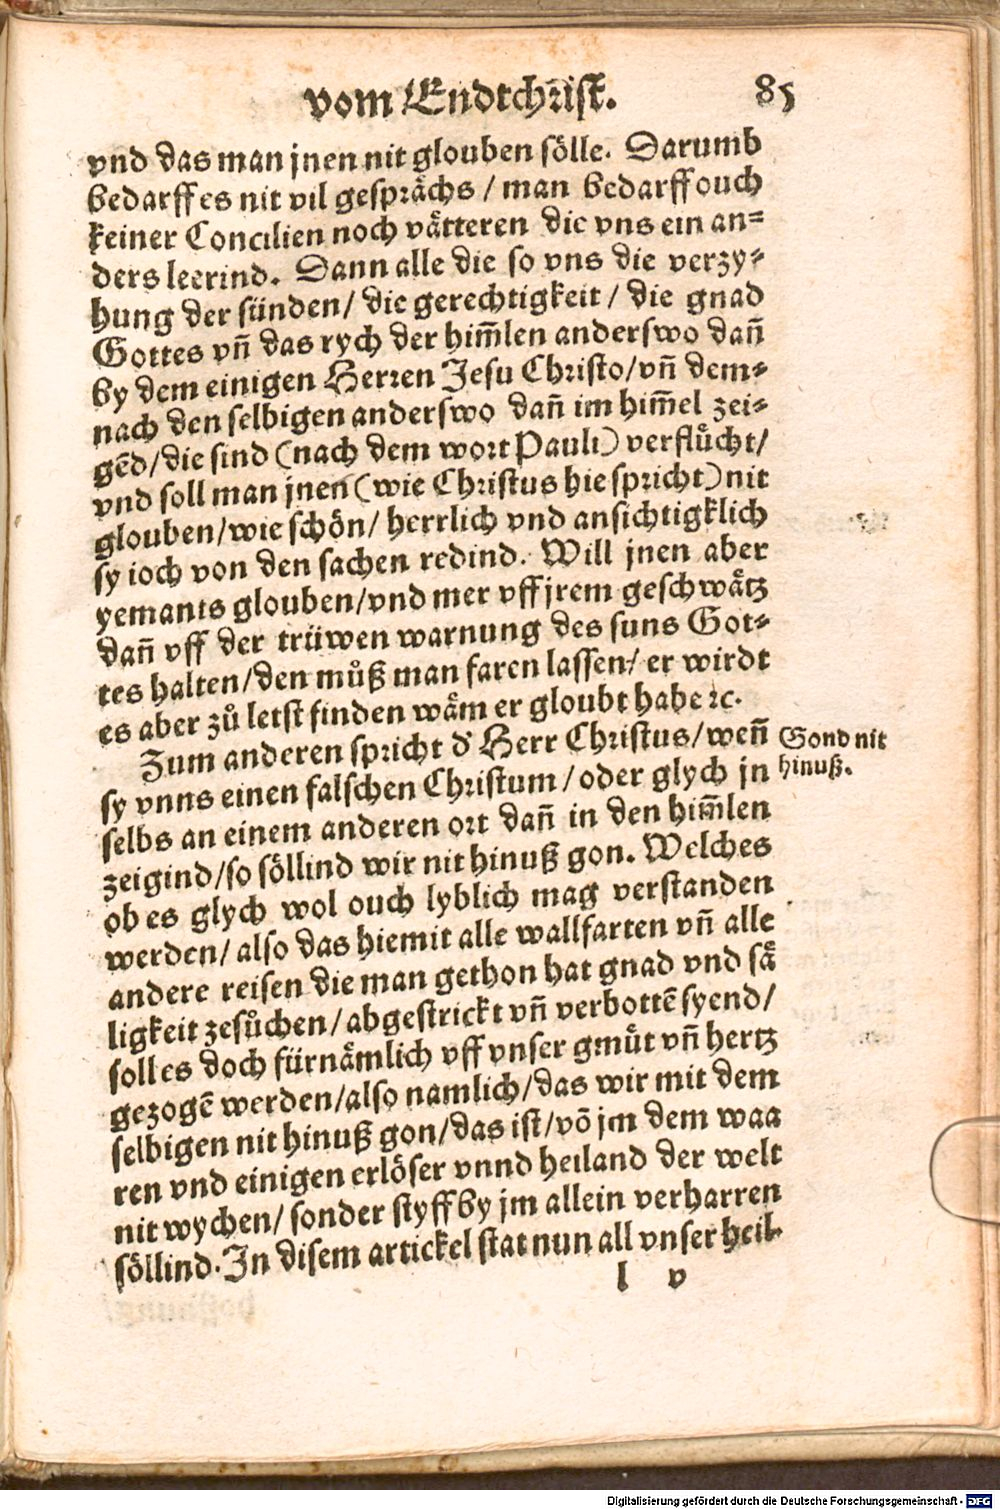 vom Endtchrist. 85
vnd das man jnen nit glouben sölle. Darumb
bedarff es nit vil gesprächs / man bedarff ouch
keiner Concilien noch vätteren die vns ein an=
ders leerind. Dann alle die so vns die verzy=
hung der sünden / die gerechtigkeit / die gnad
Gottes vn̄ das rych der him̄len anderswo dañ
by dem einigen Herren Jesu Christo / vn̄ dem=
nach den selbigen anderswo dañ im him̄el zei=
gēd / die sind (nach dem wort Pauli) verflůcht /
vnd soll man jnen (wie Christus hie spricht) nit
glouben / wie schön / herrlich vnd ansichtigklich
sy ioch von den sachen redind. Will jnen aber
yemants glouben / vnd mer vff jrem geschwätz
dañ vff der trüwen warnung des suns Got=
tes halten / den můß man faren lassen / er wirdt
es aber zů letst finden wäm er gloubt habe ꝛc.
Zum anderen spricht d' Herr Christus / weñ
Gond nit
hinuß.
sy vnns einen falschen Christum / oder glych jn
selbs an einem anderen ort dañ in den him̄len
zeigind / so söllind wir nit hinuß gon. Welches
ob es glych wol ouch lyblich mag verstanden
werden / also das hiemit alle wallfarten vn̄ alle
andere reisen die man gethon hat gnad vnd sä
ligkeit zesůchen / abgestrickt vn̄ verbottē syend /
soll es doch fürnämlich vff vnser gmüt vn̄ hertz
gezogē werden / also namlich / das wir mit dem
selbigen nit hinuß gon / das ist / vō jm dem waa
ren vnd einigen erlöser vnnd heiland der welt
nit wychen / sonder styff by jm allein verharren
söllind. In disem artickel stat nun all vnser heil.
l v
Digitalisierung gefördert durch die Deutsche Forschungsgemeinschaft - DFG